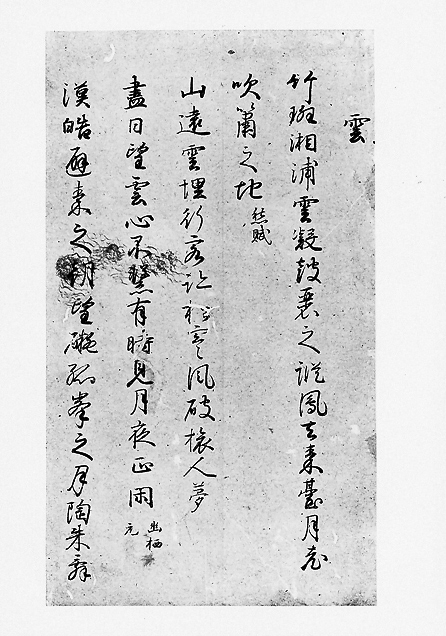 雲
竹斑湘浦雲凝鼓瑟之蹤鳳去秦臺月老
吹簫之地 愁賦
山遠雲埋行客跡松寒風破旅人夢
盡日望雲心不繫有時見月夜正閑 幽栖 元
漢皓避秦之朝望礙孤峯之月陶朱辞